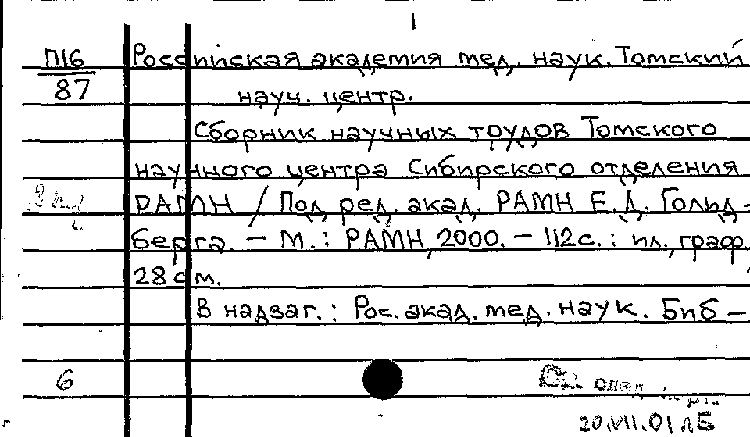 1
П16 Российская академия мед. наук. Томский
87 науч. центр.
Сборник научных трудов Томского
научного центра Сибирского отделения
РАМН / Под ред. акад. РАМН Е.Д. Гольд-
берга. – М.: РАМН, 2000. – 112с.: ил., граф.
28 см.
В надзаг.: Рос. акад. мед. наук. Биб –
6
20.VII.01 лБ